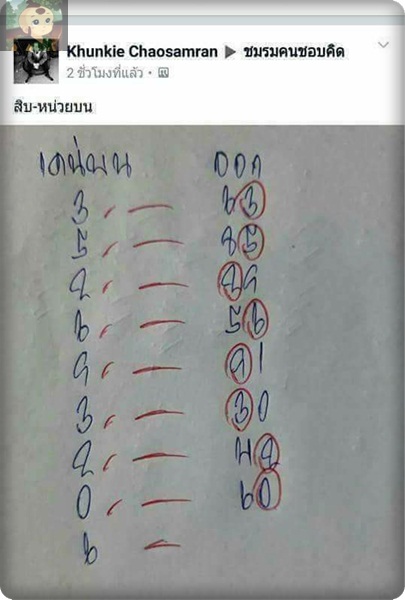 Khunkie Chaosamran ▶ ชมรมคนชอบคิด
2 ชั่วโมงที่แล้ว ·
สิบ-หน่วยบน
เด่นบน ออก
3 , — 63
5 , — 85
2 , — 29
6 , — 56
9 , — 91
3 , — 30
2 , — 42
0 , — 60
6 —